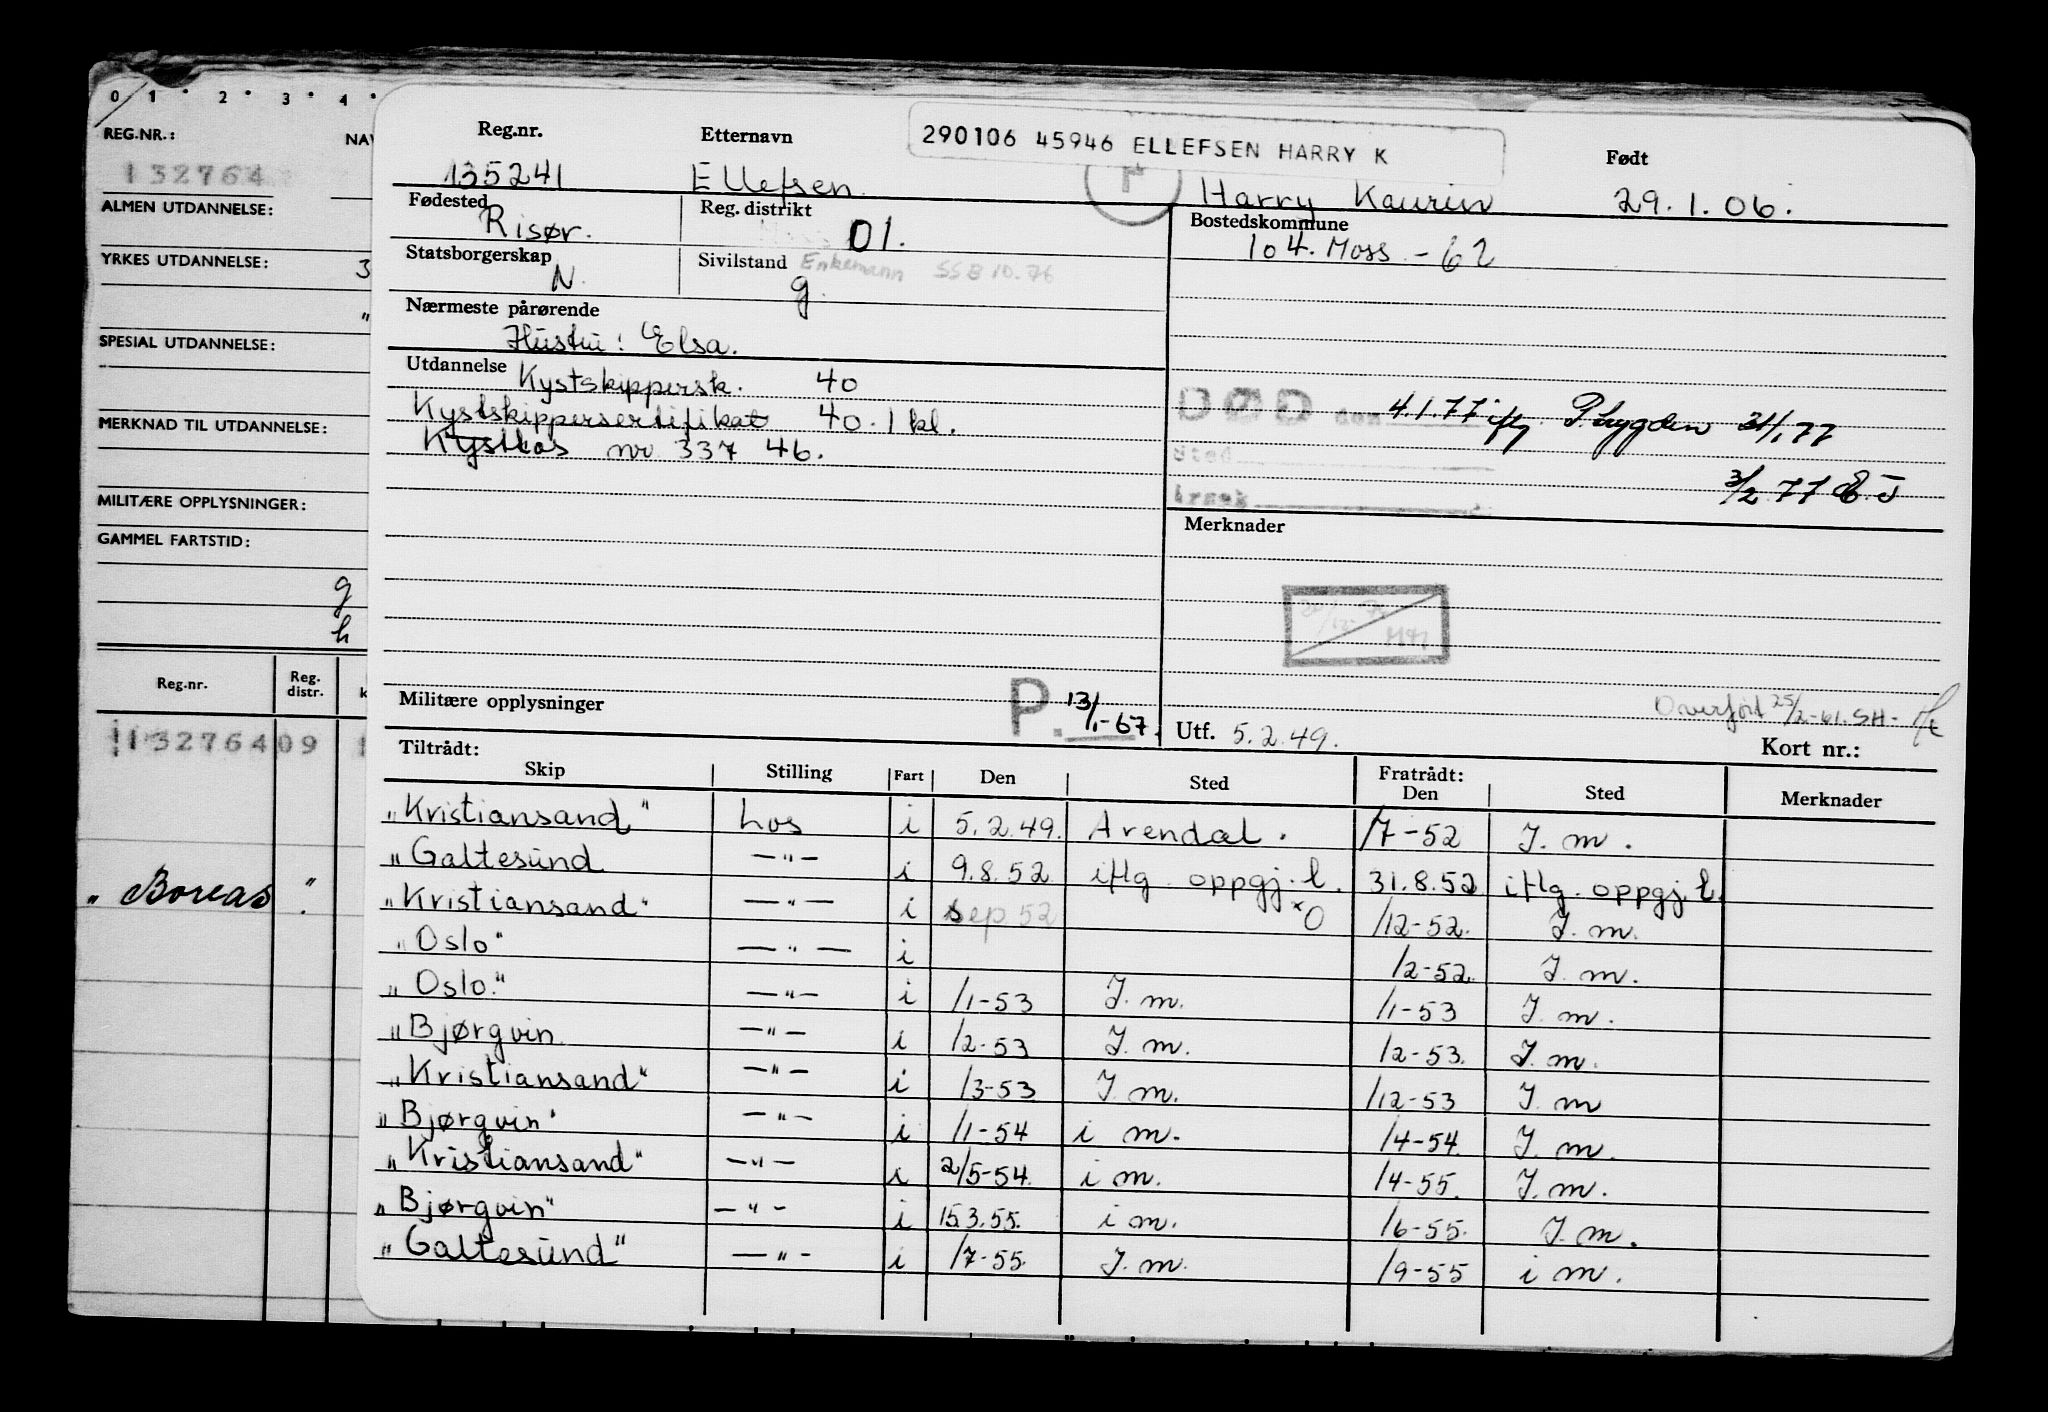 0 1 2 3 4
REG.NR.:
132764
ALMEN UTDANNELSE:
YRKES UTDANNELSE: 3
"
SPESIAL UTDANNELSE:
MERKNAD TIL UTDANNELSE:
MILITÆRE OPPLYSNINGER:
GAMMEL FARTSTID:
g
h
Reg.nr. Reg. distr. k
113276409
„Boreas"
290106 45946 ELLEFSEN HARRY K
Reg.nr. Etternavn Født
135241 Ellefsen Harry Kaurin 29.1.06.
Fødested Reg. distrikt Bostedskommune
Risør. 01. 104. Moss - 62
Statsborgerskap Sivilstand Enkemann SSB 10.76
N. g.
Nærmeste pårørende
Hustru: Elsa.
Utdannelse Kystskippersk. 40
Kystskippersertifikat 40. 1 kl.
Kystlos nr 337 46.
DØD den 4.1.77 iflg P.trygden 31/1 77
Sted
Årsak 3/2 77 E.J
Merknader
Militære opplysninger P. 13/1-67.
Overført 25/2-61. SH-
Utf. 5.2.49. Kort nr.:
Tiltrådt: Fratrådt:
Skip Stilling Fart Den Sted Den Sted Merknader
„Kristiansand" Los i 5.2.49. Arendal. /7-52 J.m.
„Galtesund —"— i 9.8.52 iflg. oppgj.l. 31.8.52 iflg. oppgj.l.
„Kristiansand" —"— i sep 52 *O /12-52. J.m.
„Oslo" —"— i /2-52. J.m.
„Oslo." —"— i /1-53 J.m. /1-53 J.m.
„Bjørgvin —"— i /2-53 J.m. /2-53. J.m.
„Kristiansand" —"— i /3-53 J.m. /12-53 J.m
„Bjørgvin" —"— i /1-54 i m. /4-54. J.m.
„Kristiansand" —"— i 2/5-54. i m. /4-55. J.m.
„Bjørgvin" —"— i 15.3.55. i m. /6-55. J.m.
„Galtesund" —"— i /7-55. J.m. /9-55 i m.